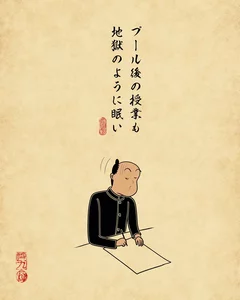 プール後の授業も
地獄のように眠い